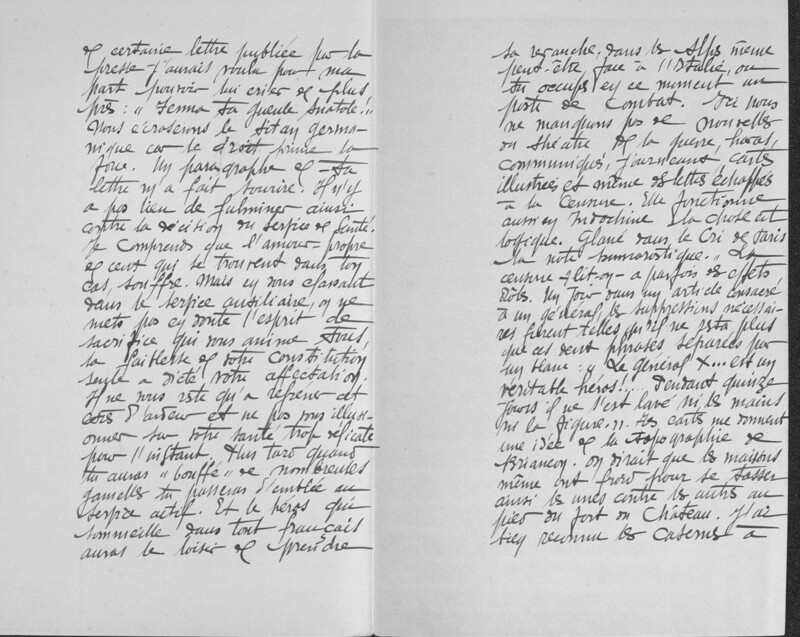 de certaine lettre publiée par la
presse j'aurais voulu pour ma
part pouvoir lui crier de plus
près : " Ferma ta gueule Anatole ! "
Nous écraserons le titan germa-
nique car le droit prime la
force. Un paragraphe de ta
lettre m'a fait sourire. Il n'y
a pas lieu de fulminer ainsi
contre la décision du service de santé.
Je comprends que l'amour-propre
de ceux qui se trouvent dans ton
cas, souffre. Mais en vous classant
dans le service auxiliaire, on ne
mets pas en doute l'esprit de
sacrifice qui vous anime tous,
la faiblesse de votre constitution
seule a dicté votre affectation.
Il ne vous reste qu'à refréner cet
excès d'ardeur et ne pas vous illusi-
onner sur votre santé trop délicate
pour l'instant. Plus tard quand
tu auras " bouffé " de nombreuses
gamelles tu passeras d'emblée au
service actif. Et le héros qui
sommeille dans tout français
auras le loisir de prendre
sa revanche, dans les Alpes même
peut-être, face à l'Italie, ou
tu occupes en ce moment un
poste de combat. Ici nous
ne manquons pas de nouvelles
du théâtre de la guerre, havas,
communiqués, journeaux, cartes
illustrées et même des lettres échappées
à la censure. Elle fonctionne
aussi en Indochine la chose est
logique. Glané dans le Cri de Paris
la note humoristique. " La
censure - dit-on - a parfois des effets
drôles. Un jour dans un article consacré
à un général, les suppressions nécessai-
res furent telles qu'il ne resta plus
que ces deux phrases séparées par
un blanc : " Le général X... est un
véritable héros !... Pendant quinze
jours il ne s'est lavé ni les mains
ni la figure. " Tes cartes me donnent
une idée de la topographie de
Briançon. On dirait que les maisons
même ont froid pour se tasser
ainsi les unes contre les autres au
pied du fort du Château. J'ai
bien reconnu les casernes à